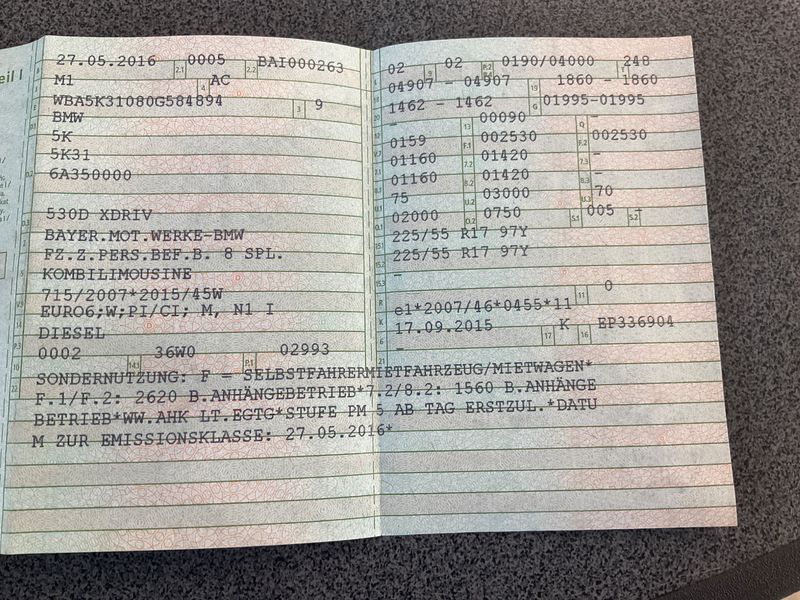 eil I
27.05.2016 2.1 0005 2.2 BAI000263
M1 4 AC
WBA5K31080G584894 3 9
BMW
5K
5K31
6A350000
530D XDRIV
BAYER.MOT.WERKE-BMW
FZ.Z.PERS.BEF.B. 8 SPL.
KOMBILIMOUSINE
715/2007*2015/45W
EURO6;W;PI/CI; M, N1 I
DIESEL
0002 14.1 36W0 P.1 02993
02 9 02 P.2 0190/04000 T 248
04907 - 04907 19 1860 - 1860
1462 - 1462 G 01995-01995
13 00090 Q -
0159 F.1 002530 F.2 002530
01160 7.2 01420 7.3 -
01160 8.2 01420 8.3 -
75 U.2 03000 U.3 70
02000 O.2 0750 S.1 005 S.2 -
225/55 R17 97Y
225/55 R17 97Y
-
R 11 0
K e1*2007/46*0455*11
6 17.09.2015 17 K 16 EP336904
21 -
SONDERNUTZUNG: F = SELBSTFAHRERMIETFAHRZEUG/MIETWAGEN*
F.1/F.2: 2620 B.ANHÄNGEBETRIEB*7.2/8.2: 1560 B.ANHÄNGE
BETRIEB*WW.AHK LT.EGTG*STUFE PM 5 AB TAG ERSTZUL.*DATU
M ZUR EMISSIONSKLASSE: 27.05.2016*